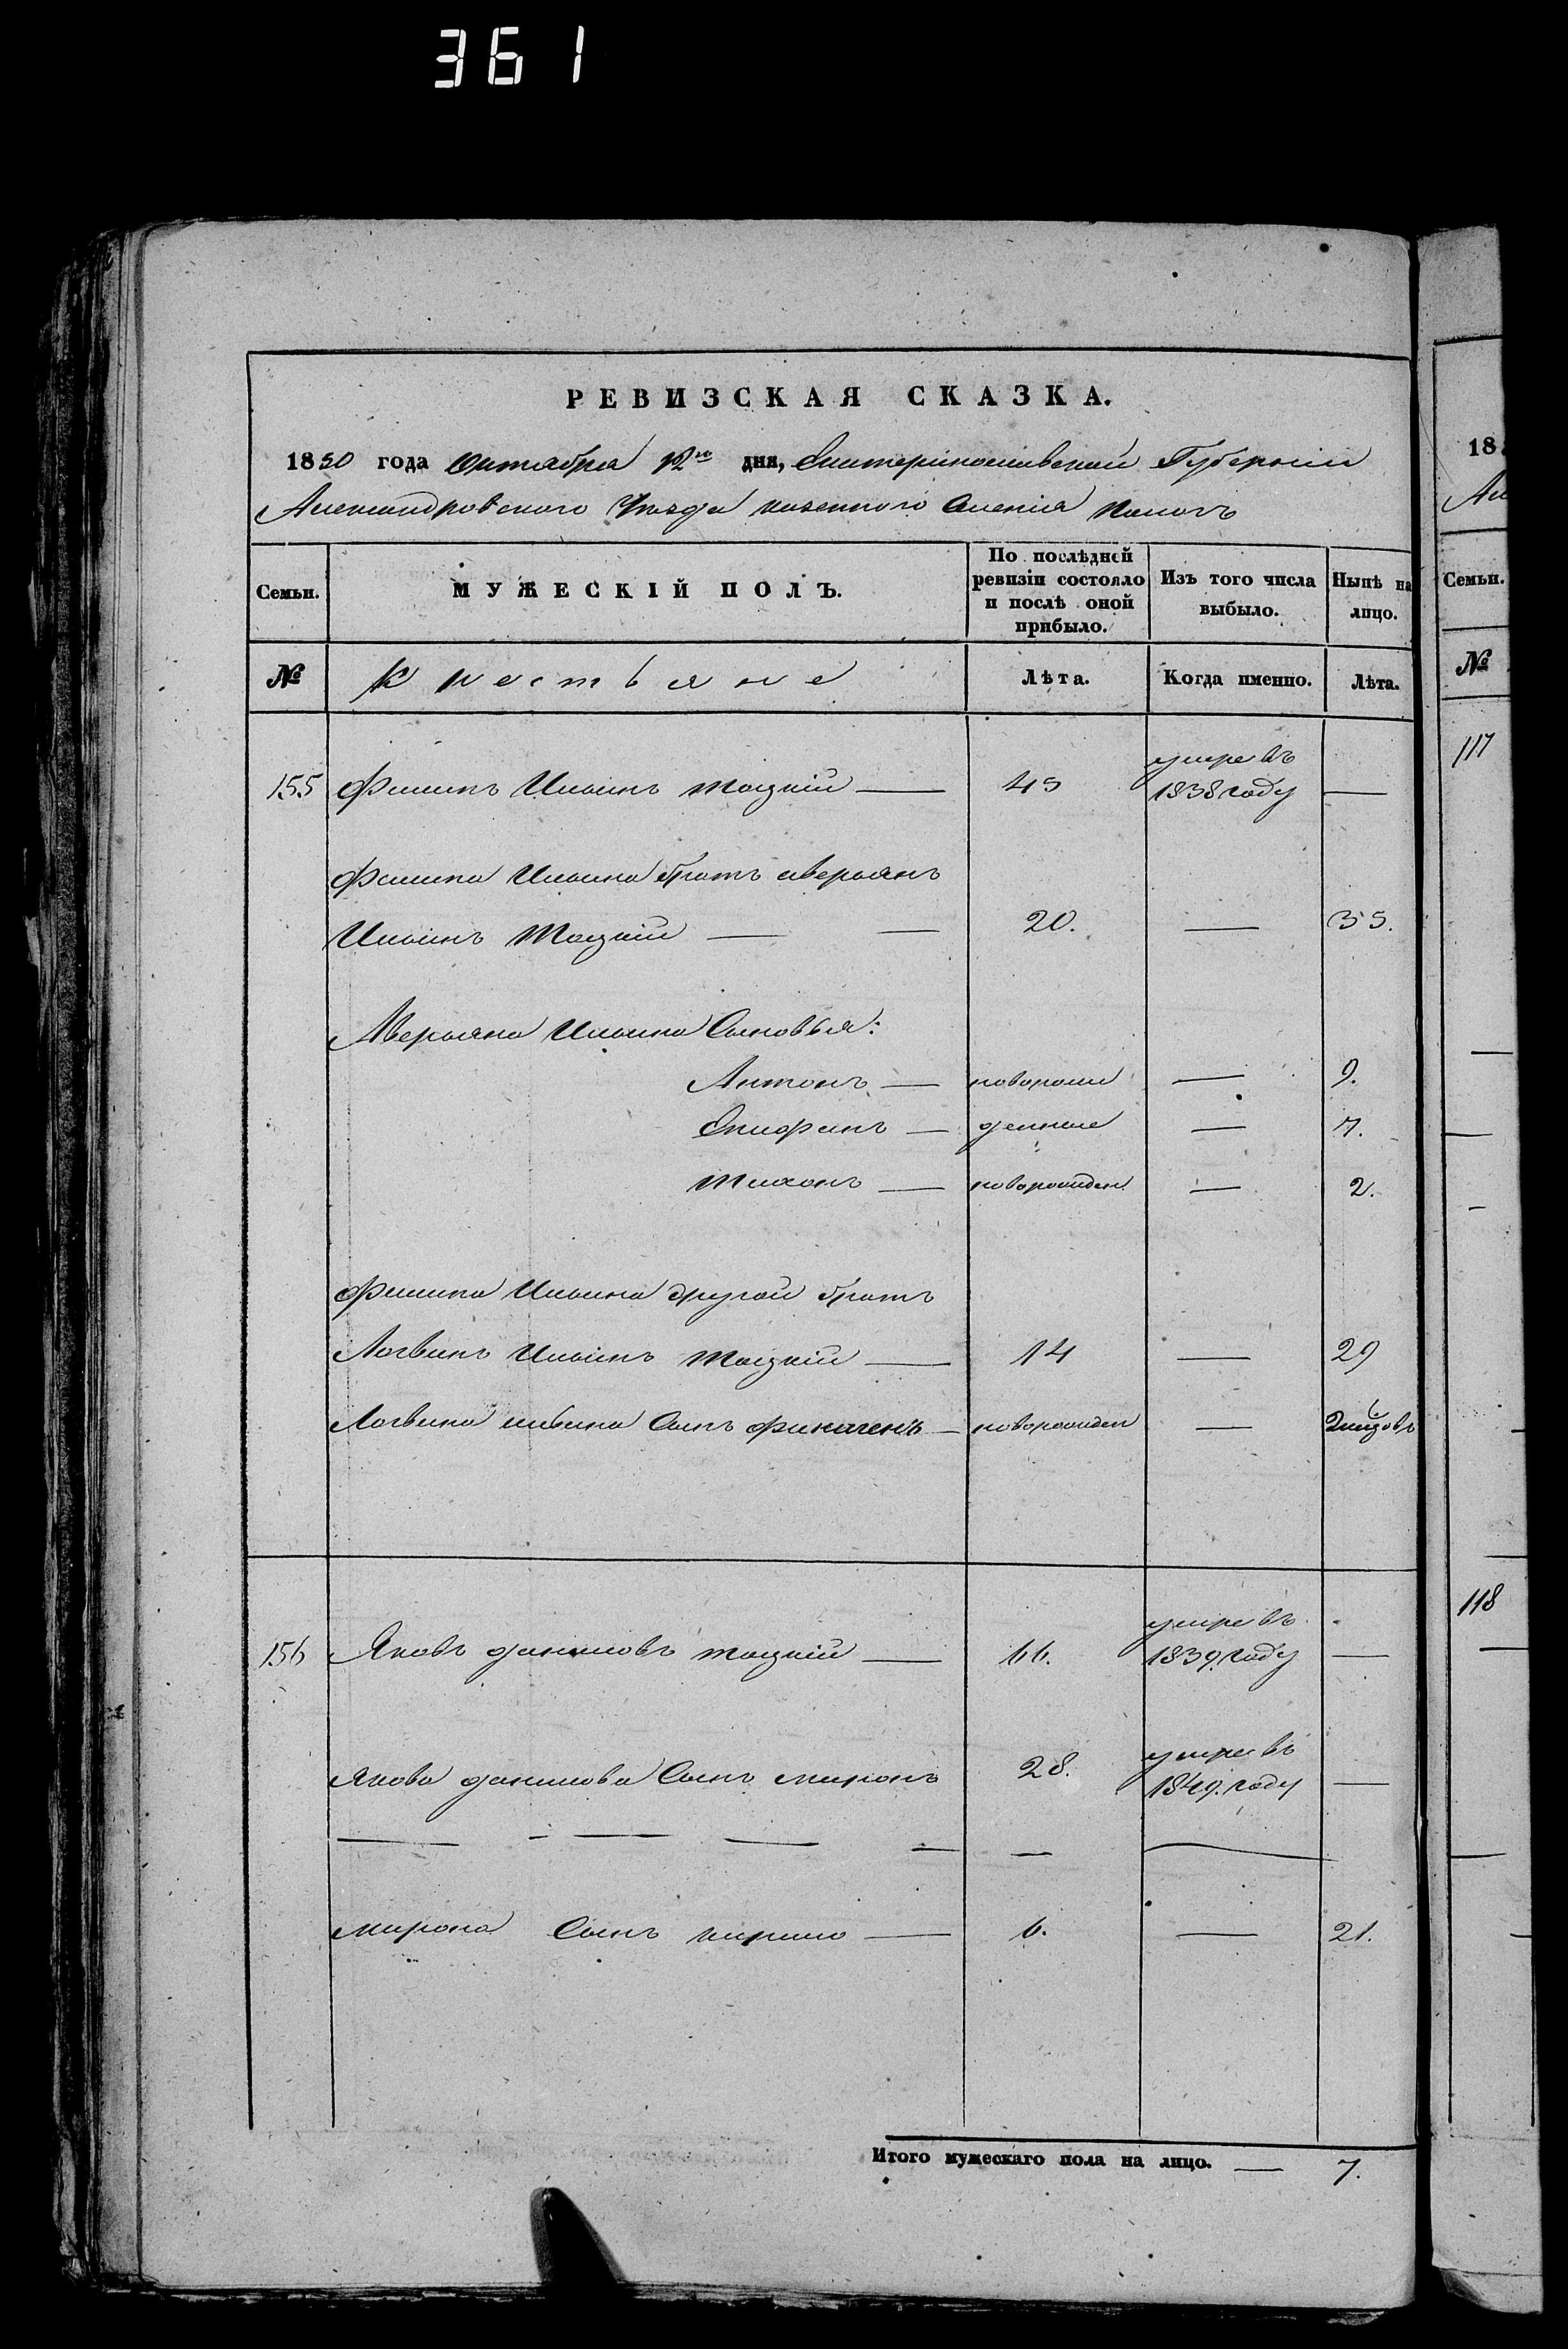 361
РЕВИЗСКАЯ СКАЗКА.
1850 года Октября 12го дня, Екатеринославской Губернии
Александровского Уезда казенного Селения
Семьи. МУЖЕСКІЙ ПОЛЪ. По послѣдней ревизіи состояло и послѣ оной прибыло. Изъ того числа выбыло. Нынѣ на лицо.
№ Крестьяне Лѣта. Когда именно. Лѣта.
155 Филипъ Ильинъ Тоцкій — 45 умре въ 1838 году —
Филипа Ильина братъ аверьянъ
Ильинъ Тоцкій — — 20. — 35.
Аверьяна Ильина Сыновья:
Антонъ — новорож — 9.
Епифанъ — денные — 7.
Тихонъ — новорожден — 2.
Филипа Ильина другой братъ
Логвинъ Ильинъ Тоцкій — 14 — 29
Логвина ильина Сынъ — новорожден —
156 Яковъ даниловъ тоцкій — 66. умре въ 1839. году —
Якова данилова Сынъ миронъ 28. умре въ 1849. году —
мирона Сынъ кирило — 6. — 21.
Итого мужескаго пола на лицо. — 7.
18
Семьи.
№
117
118